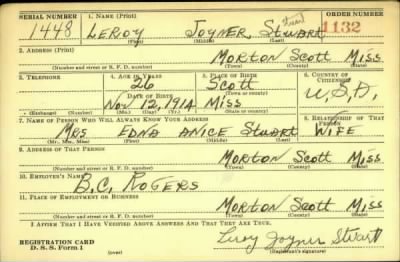 SERIAL NUMBER 1. NAME (Print) ORDER NUMBER
1448 LEROY JOYNER STUART 1132
(First) (Middle) (Last)
2. ADDRESS (Print)
MORTON SCOTT MISS
(Number and street or R. F. D. number) (Town) (County) (State)
3. TELEPHONE 4. AGE IN YEARS 5. PLACE OF BIRTH 6. COUNTRY OF CITIZENSHIP
26 SCOTT
(Town or county)
DATE OF BIRTH
NOV 12, 1914 MISS U.S.A.
(Exchange) (Number) (Mo.) (Day) (Yr.) (State or country)
7. NAME OF PERSON WHO WILL ALWAYS KNOW YOUR ADDRESS 8. RELATIONSHIP OF THAT PERSON
MRS EDNA ANICE STUART WIFE
(Mr., Mrs., Miss) (First) (Middle) (Last)
9. ADDRESS OF THAT PERSON
MORTON SCOTT MISS
(Number and street or R. F. D. number) (Town) (County) (State)
10. EMPLOYER'S NAME
B.C. ROGERS
11. PLACE OF EMPLOYMENT OR BUSINESS
MORTON SCOTT MISS
(Number and street or R. F. D. number) (Town) (County) (State)
I AFFIRM THAT I HAVE VERIFIED ABOVE ANSWERS AND THAT THEY ARE TRUE.
REGISTRATION CARD
D. S. S. Form 1 (over) Leroy Joyner Stuart
(Registrant's signature)